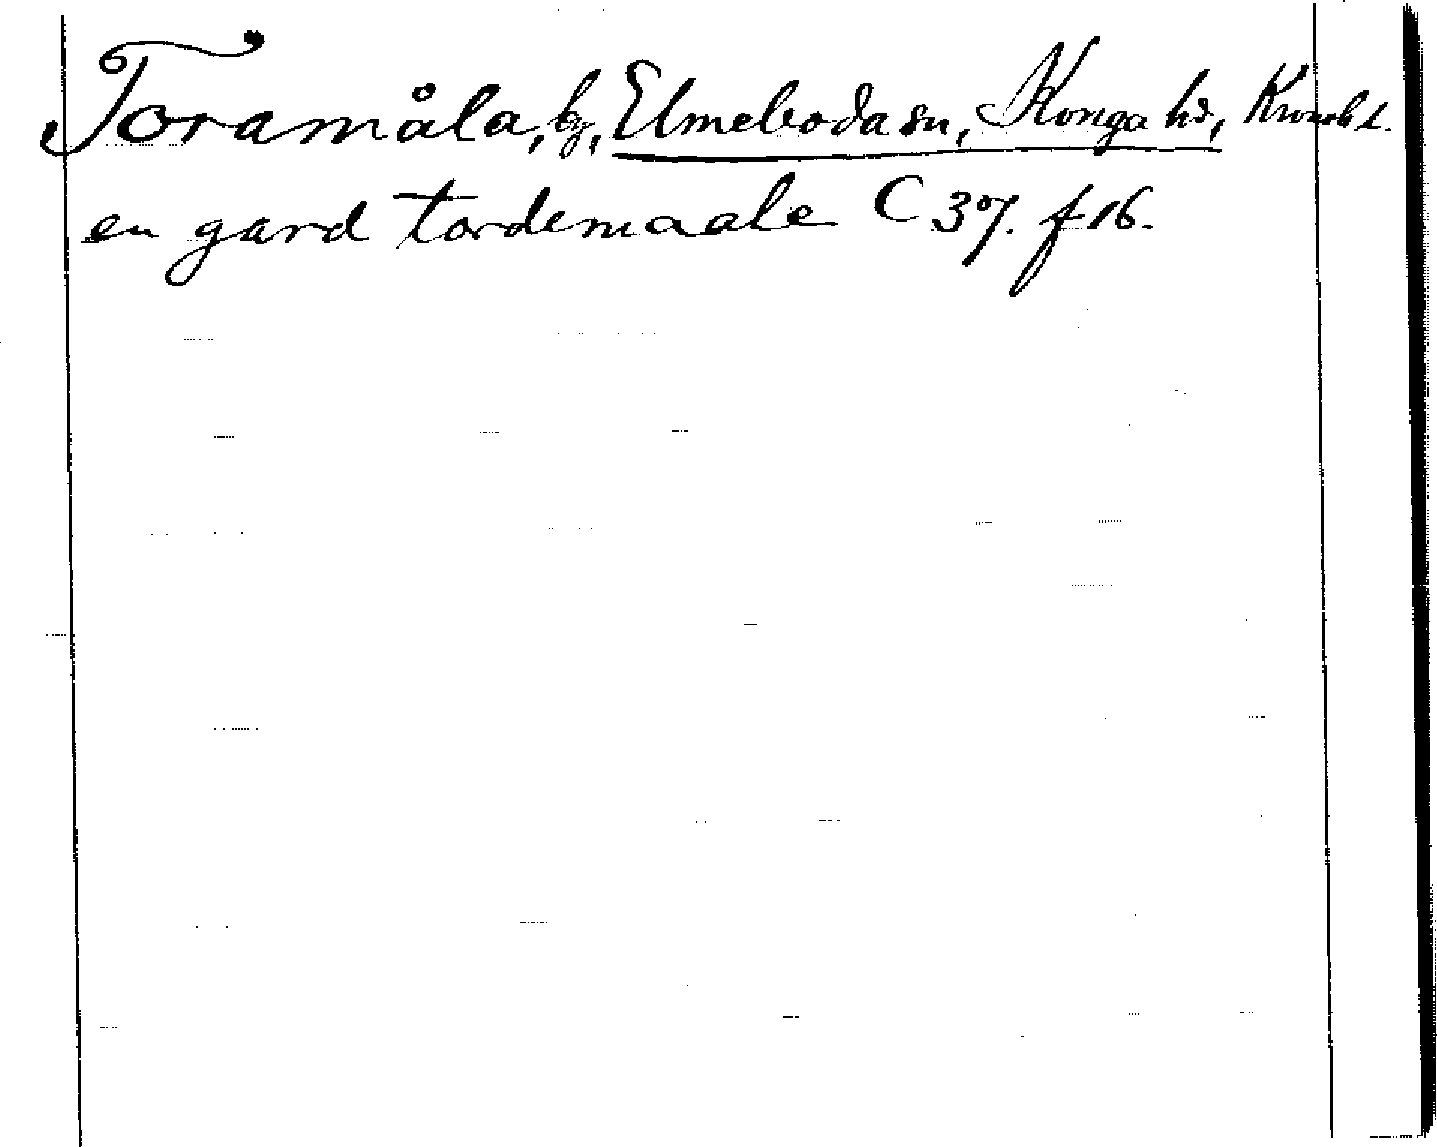 Toramåla, by, Elmeboda sn, Konga hd, Kronob l.
en gard tordemaale C 37. f 16.